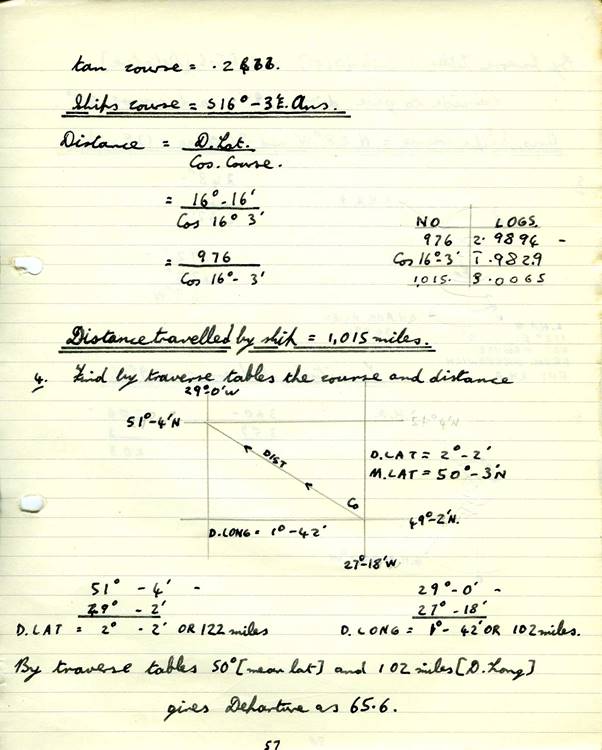 tan course =
Ships course = S16° - 3'E. Ans.
Distance = D.Lat.
Cos. Course.
= 16° - 16'
Cos 16° 3'
= 976
Cos 16° - 3'
NO LOGS.
976 2.9894 -
Cos 16° - 3' 1̄.9829
1,015. 3.0065
Distance travelled by ship = 1,015 miles.
4. Find by traverse tables the course and distance
29°-0'W
51°-4'N
DIST
D.LAT = 2°-2'
M.LAT = 50°-3'N
Co
D.LONG = 1°-42'
49°-2'N.
27°-18'W
51° - 4' -
49° - 2'
D.LAT = 2° - 2' OR 122 miles
29° - 0' -
27° - 18'
D.LONG = 1° - 42' OR 102 miles.
By traverse tables 50° [mean lat] and 102 miles [D.Long]
gives Departure as 65.6.
57